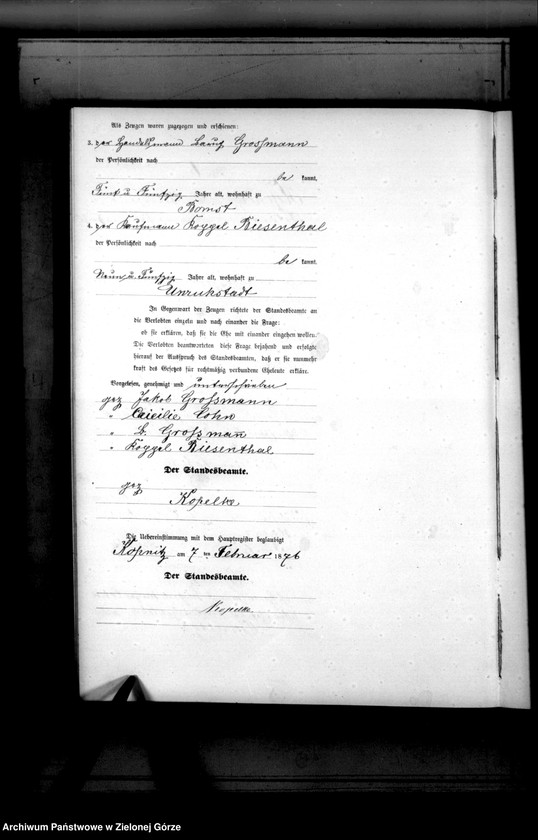 Als Zeugen waren zugezogen und erschienen:
3. der Handelsmann Baruch Grossmann
der Persönlichkeit nach
be kannt,
Fünf u. Fünfzig Jahre alt, wohnhaft zu
Bomst
4. der Kaufmann Koppel Riesenthal
der Persönlichkeit nach
be kannt,
Neun u. Fünfzig Jahre alt, wohnhaft zu
Unruhstadt
In Gegenwart der Zeugen richtete der Standesbeamte an
die Verlobten einzeln und nach einander die Frage:
ob sie erklären, daß sie die Ehe mit einander eingehen wollen.
Die Verlobten beantworteten diese Frage bejahend und erfolgte
hierauf der Ausspruch des Standesbeamten, daß er sie nunmehr
kraft des Gesetzes für rechtmäßig verbundene Eheleute erkläre.
Vorgelesen, genehmigt und unterschrieben
gez Jakob Grossmann
" Caecilie Cohn
" B. Grossman̄
" Koppel Riesenthal
Der Standesbeamte.
gez
Kopelke
Die Uebereinstimmung mit dem Hauptregister beglaubigt
Kopnitz am 7 ten Februar 1876
Der Standesbeamte.
Kopelke
Archiwum Państwowe w Zielonej Górze